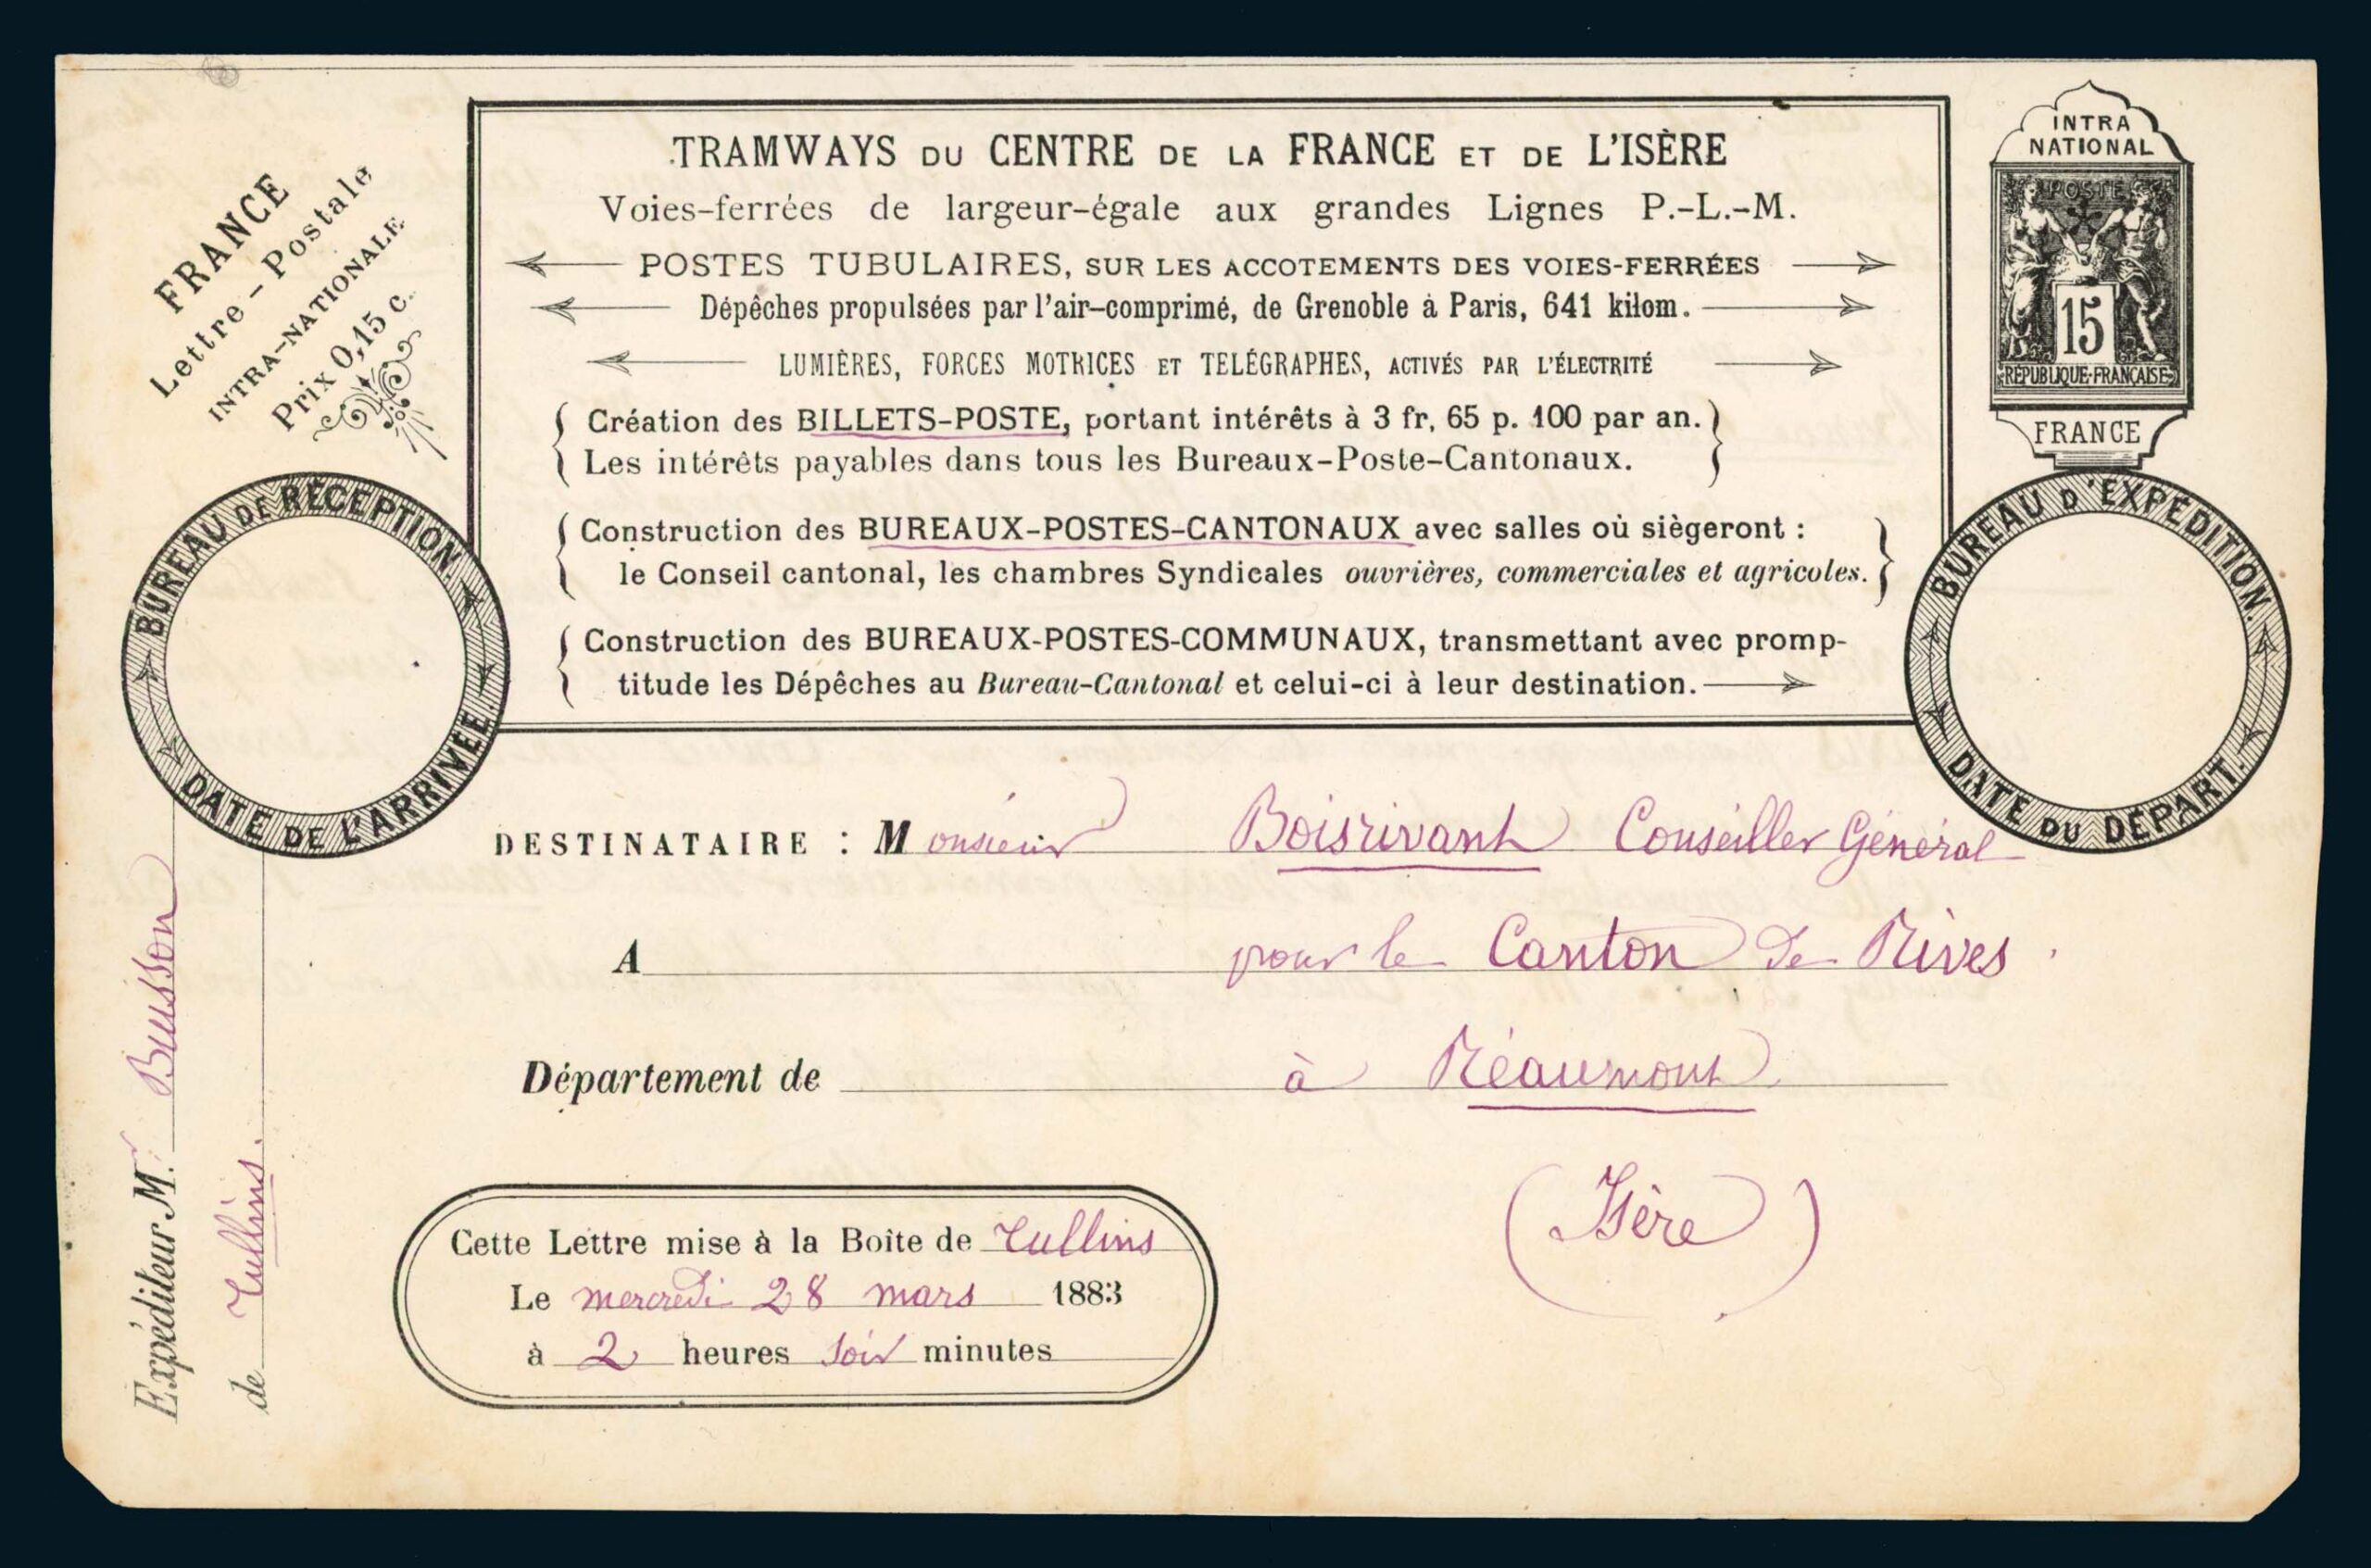 FRANCE
Lettre-Postale
INTRA-NATIONALE
Prix 0,15 c.
TRAMWAYS DU CENTRE DE LA FRANCE ET DE L'ISÈRE
Voies-ferrées de largeur-égale aux grandes Lignes P.-L.-M.
POSTES TUBULAIRES, SUR LES ACCOTEMENTS DES VOIES-FERRÉES
Dépêches propulsées par l'air-comprimé, de Grenoble à Paris, 641 kilom.
LUMIÈRES, FORCES MOTRICES ET TELÉGRAPHES, ACTIVÉS PAR L'ÉLECTRITÉ
Création des BILLETS-POSTE, portant intérêts à 3 fr, 65 p. 100 par an.
Les intérêts payables dans tous les Bureaux-Poste-Cantonaux.
Construction des BUREAUX-POSTES-CANTONAUX avec salles où siègeront :
le Conseil cantonal, les chambres Syndicales ouvrières, commerciales et agricoles.
Construction des BUREAUX-POSTES-COMMUNAUX, transmettant avec promp-
titude les Dépêches au Bureau-Cantonal et celui-ci à leur destination.
INTRA
NATIONAL
POSTE
15
RÉPUBLIQUE-FRANÇAISE
FRANCE
BUREAU DE RÉCEPTION.
DATE DE L'ARRIVÉE
BUREAU D'EXPÉDITION.
DATE DU DÉPART.
DESTINATAIRE : Monsieur Boisrivant Conseiller Général
A pour le Canton de Rives
Département de à Réaumont
(Isère)
Expéditeur M. Buisson
de Tullins.
Cette Lettre mise à la Boite de Tullins
Le mercredi 28 mars 1883
à 2 heures soir minutes